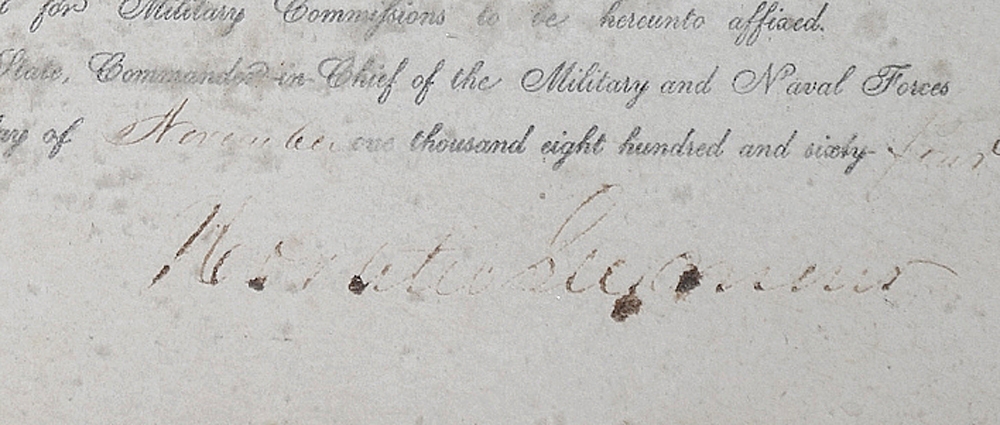 for Military Commissions to be hereunto affixed.
State, Commander-in-Chief of the Military and Naval Forces
day of November one thousand eight hundred and sixty-four
Horatio Seymour